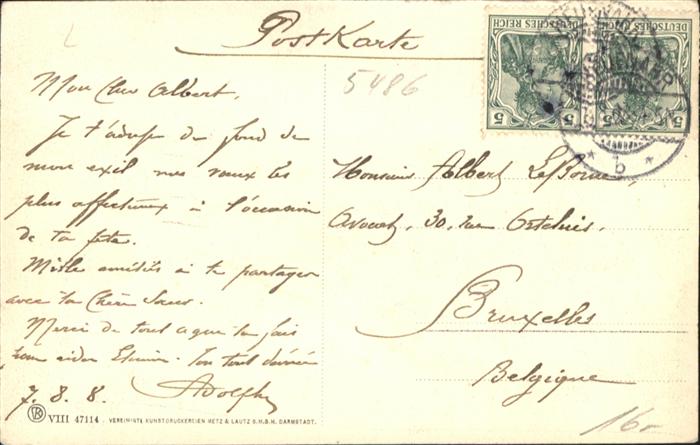 PostKarte
5486
Mon Cher Albert,
Je t'adresse du fond de
mon exil mes vœux les
plus affectueux à l'occasion
de ta fête.
Mille amitiés à te partager
avec ta Chère Sœur.
Merci de tout ce que tu fais
pour aider. Ton tout dévoué
Adolphe
7.8.8.
VIII 47114 - VEREINIGTE KUNSTDRUCKEREIEN METZ & LAUTZ G.M.B.H. DARMSTADT.
DEUTSCHES REICH
5
5
DEUTSCHES REICH
5
5
* b *
Monsieur Albert
Avocat, 30, rue
Bruxelles
Belgique
16-